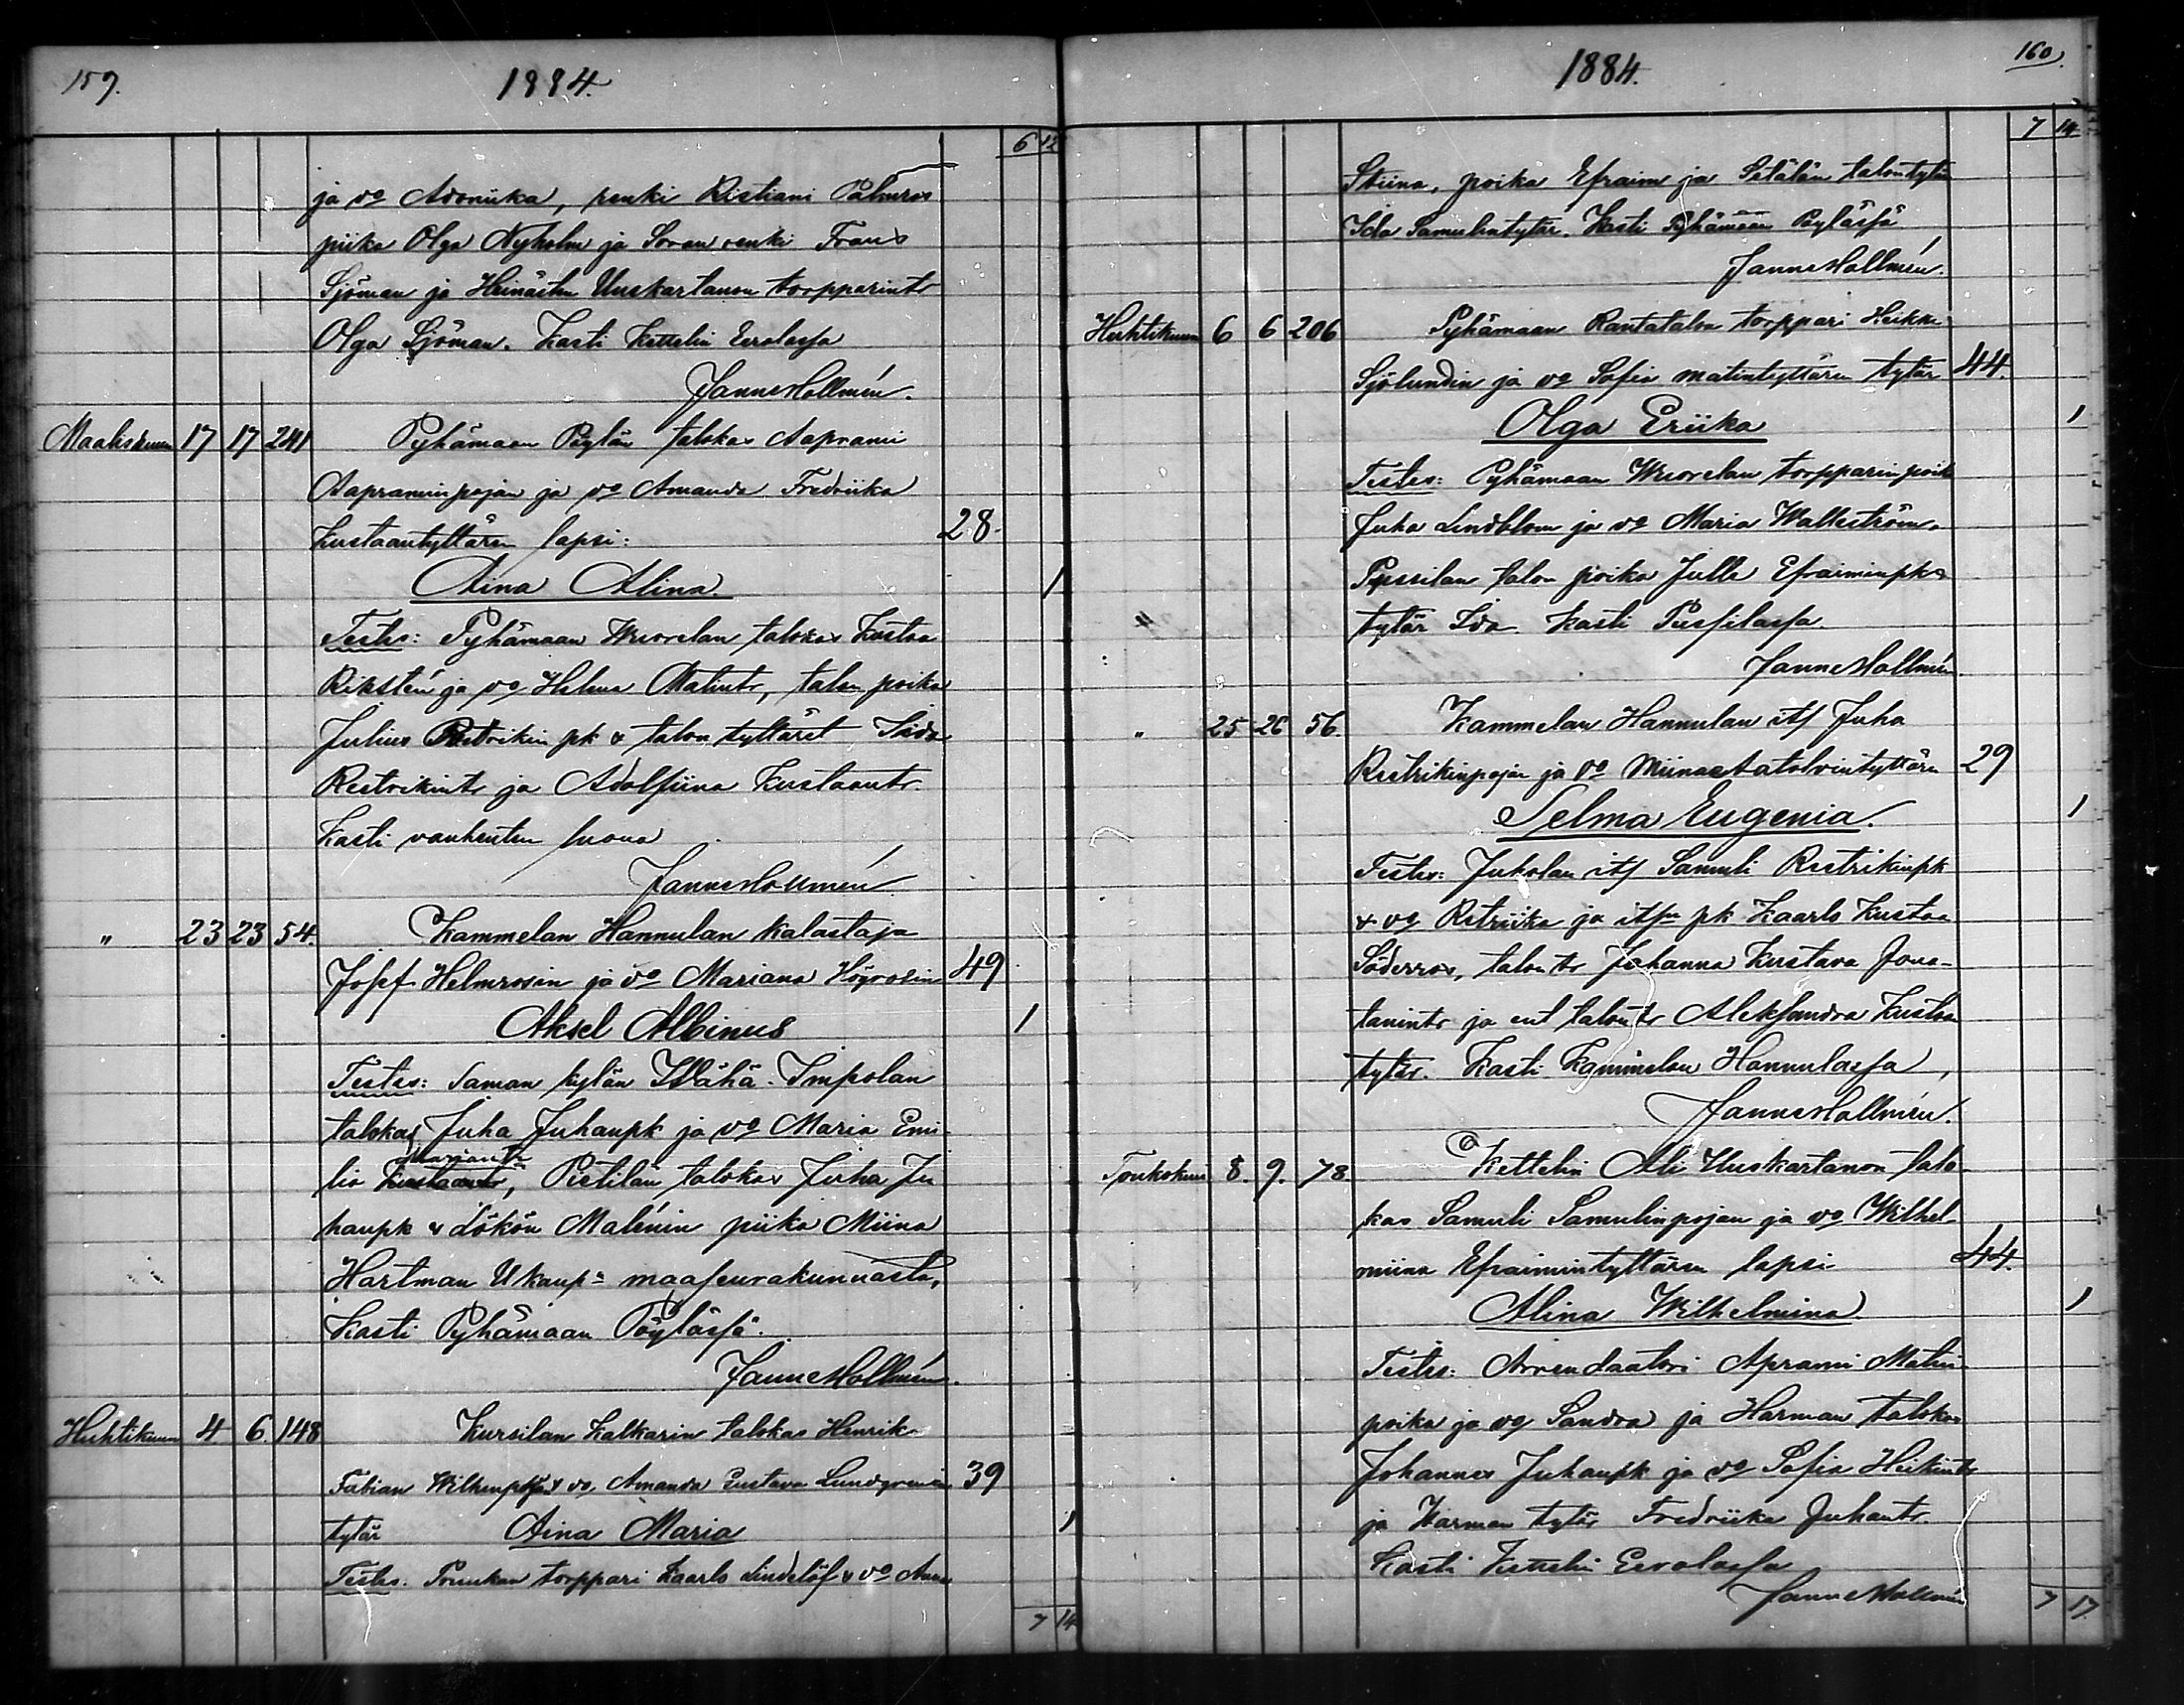 159.
1884.
6 12
ja vo Adoniika, renki Kristiani Palmros
piika Olga Nyholm ja Sorvan renki Frans
Sjöman ja Heinästen Uuskartanon torpparintr
Olga Sjöman. Kasti Kettelin Eerolassa
Janne Hollmén.
Maaliskuun 17 17 241 Pyhämaan Pöylän talokas Aaprami
Aapraminpojan ja vo Amanda Fredriika
Kustaantyttären lapsi: 28.
Aina Alina. 1
Testes: Pyhämaan Wuorelan talokas Kustaa
Rikstén ja vo Helena Matintr, talon poika
Julius Retrikin pk & talon tyttäret Iida
Retrikintr ja Adolfiina Kustaantr.
Kasti vanhenten luona
Janne Hollmén
" 23 23 54. Kammelan Hannulan kalastaja
Josef Helmrosin ja vo Mariana Högrosin 49
Aksel Albinus 1
Testes: Saman kylän Wähä-Impolan
talokas Juha Juhanpk ja vo Maria Emi-
lia Kustaantr, Pietilän talokas Juha Ju
hanpk & Lökön Malénin piika Miina
Hartman Ukaup: maaseurakunnasta,
Kasti Pyhämaan Pöylässä.
Janne Hollmén.
Huhtikuun 4. 6. 148 Kursilan Kalkarin talokas Henrik
Fabian & vo Amanda Gustava Lundgrenin 39
tytär Aina Maria 1
Testes. torppari Kaarlo Lindelöf & vo Anna
7 14
160.
1884.
7 14
Stiina, poika Efraim ja Sätälän talontytär
Ida Samulintytär. Kasti Pyhämaan Pöylässä
Janne Hollmén.
Huhtikuun 6 6 206 Pyhämaan Rantatalon torppari Heikki
Sjölundin ja vo Sofia Matintyttären tytär 44.
Olga Eriika 1
Testes: Pyhämaan Wuorelan torpparin poik
Juha Lindblom ja vo Maria Wallström.
Pyssilan talon poika Julle Efraiminpk &
tytär Ida. Kasti Pussilassa.
Janne Hollmén
" 25 26 56. Kammelan Hannulan its Juha
Retrikinpojan ja vo Miina Aatolvintyttären 29
Selma Eugenia. 1
Testes: Jukolan its Samuli Retrikinpk
& vo Retriika ja itsn pk Kaarlo Kustaa
Söderros, talon tr Johanna Kustava Jona-
tanintr ja ent talontr Aleksandra Kustaa
tytär. Kasti Kammelan Hannulassa,
Janne Hollmén.
Toukokuu 8. 9. 78. Kettelin Ali Uuskartanon talo
kas Samuli Samulinpojan ja vo Wilhel-
miina Efraimintyttären lapsi 44.
Alina Wilhelmina. 1
Testes: Arrendaatori Aprami Matin
poika ja vo Sandra ja Harman talokas
Johannes Juhanpk ja vo Sofia Heikintr
ja Harman tytär Fredriika Juhantr.
Kasti Kettelin Eerolassa
Janne Hollmén
7 17